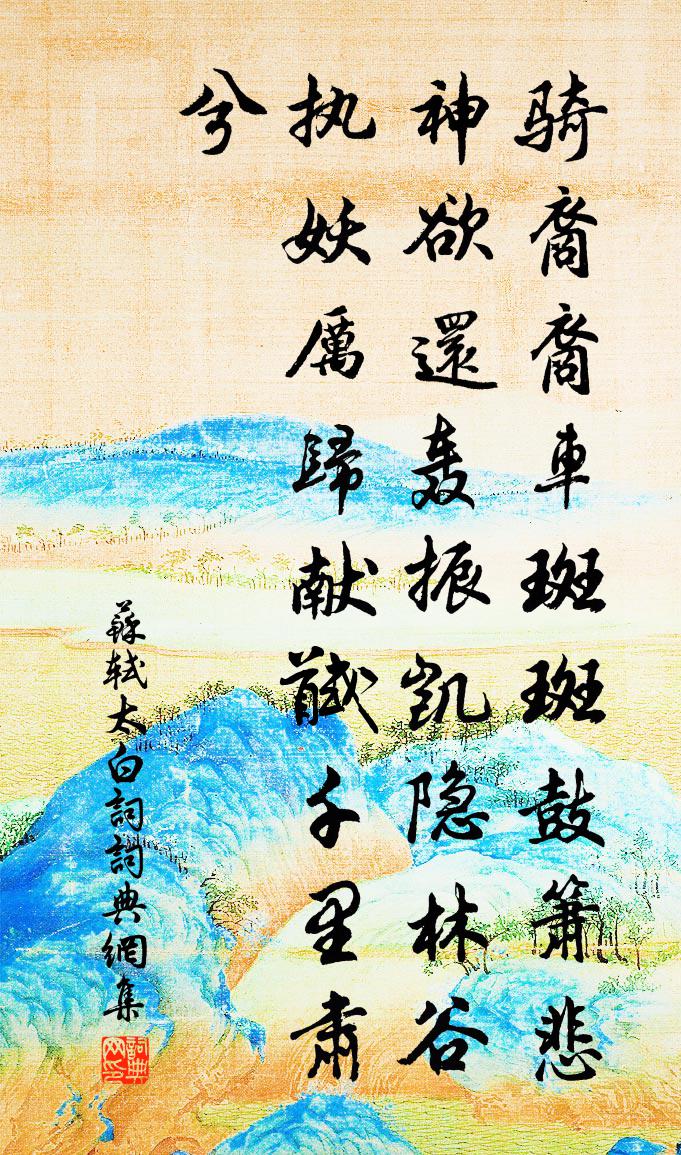 骑裔裔車斑斑鼓箫悲
神欲還轰振凱隐林谷
执妖厲歸献馘千里肃
兮
蘇轼太白詞詞典網集
詞典网印